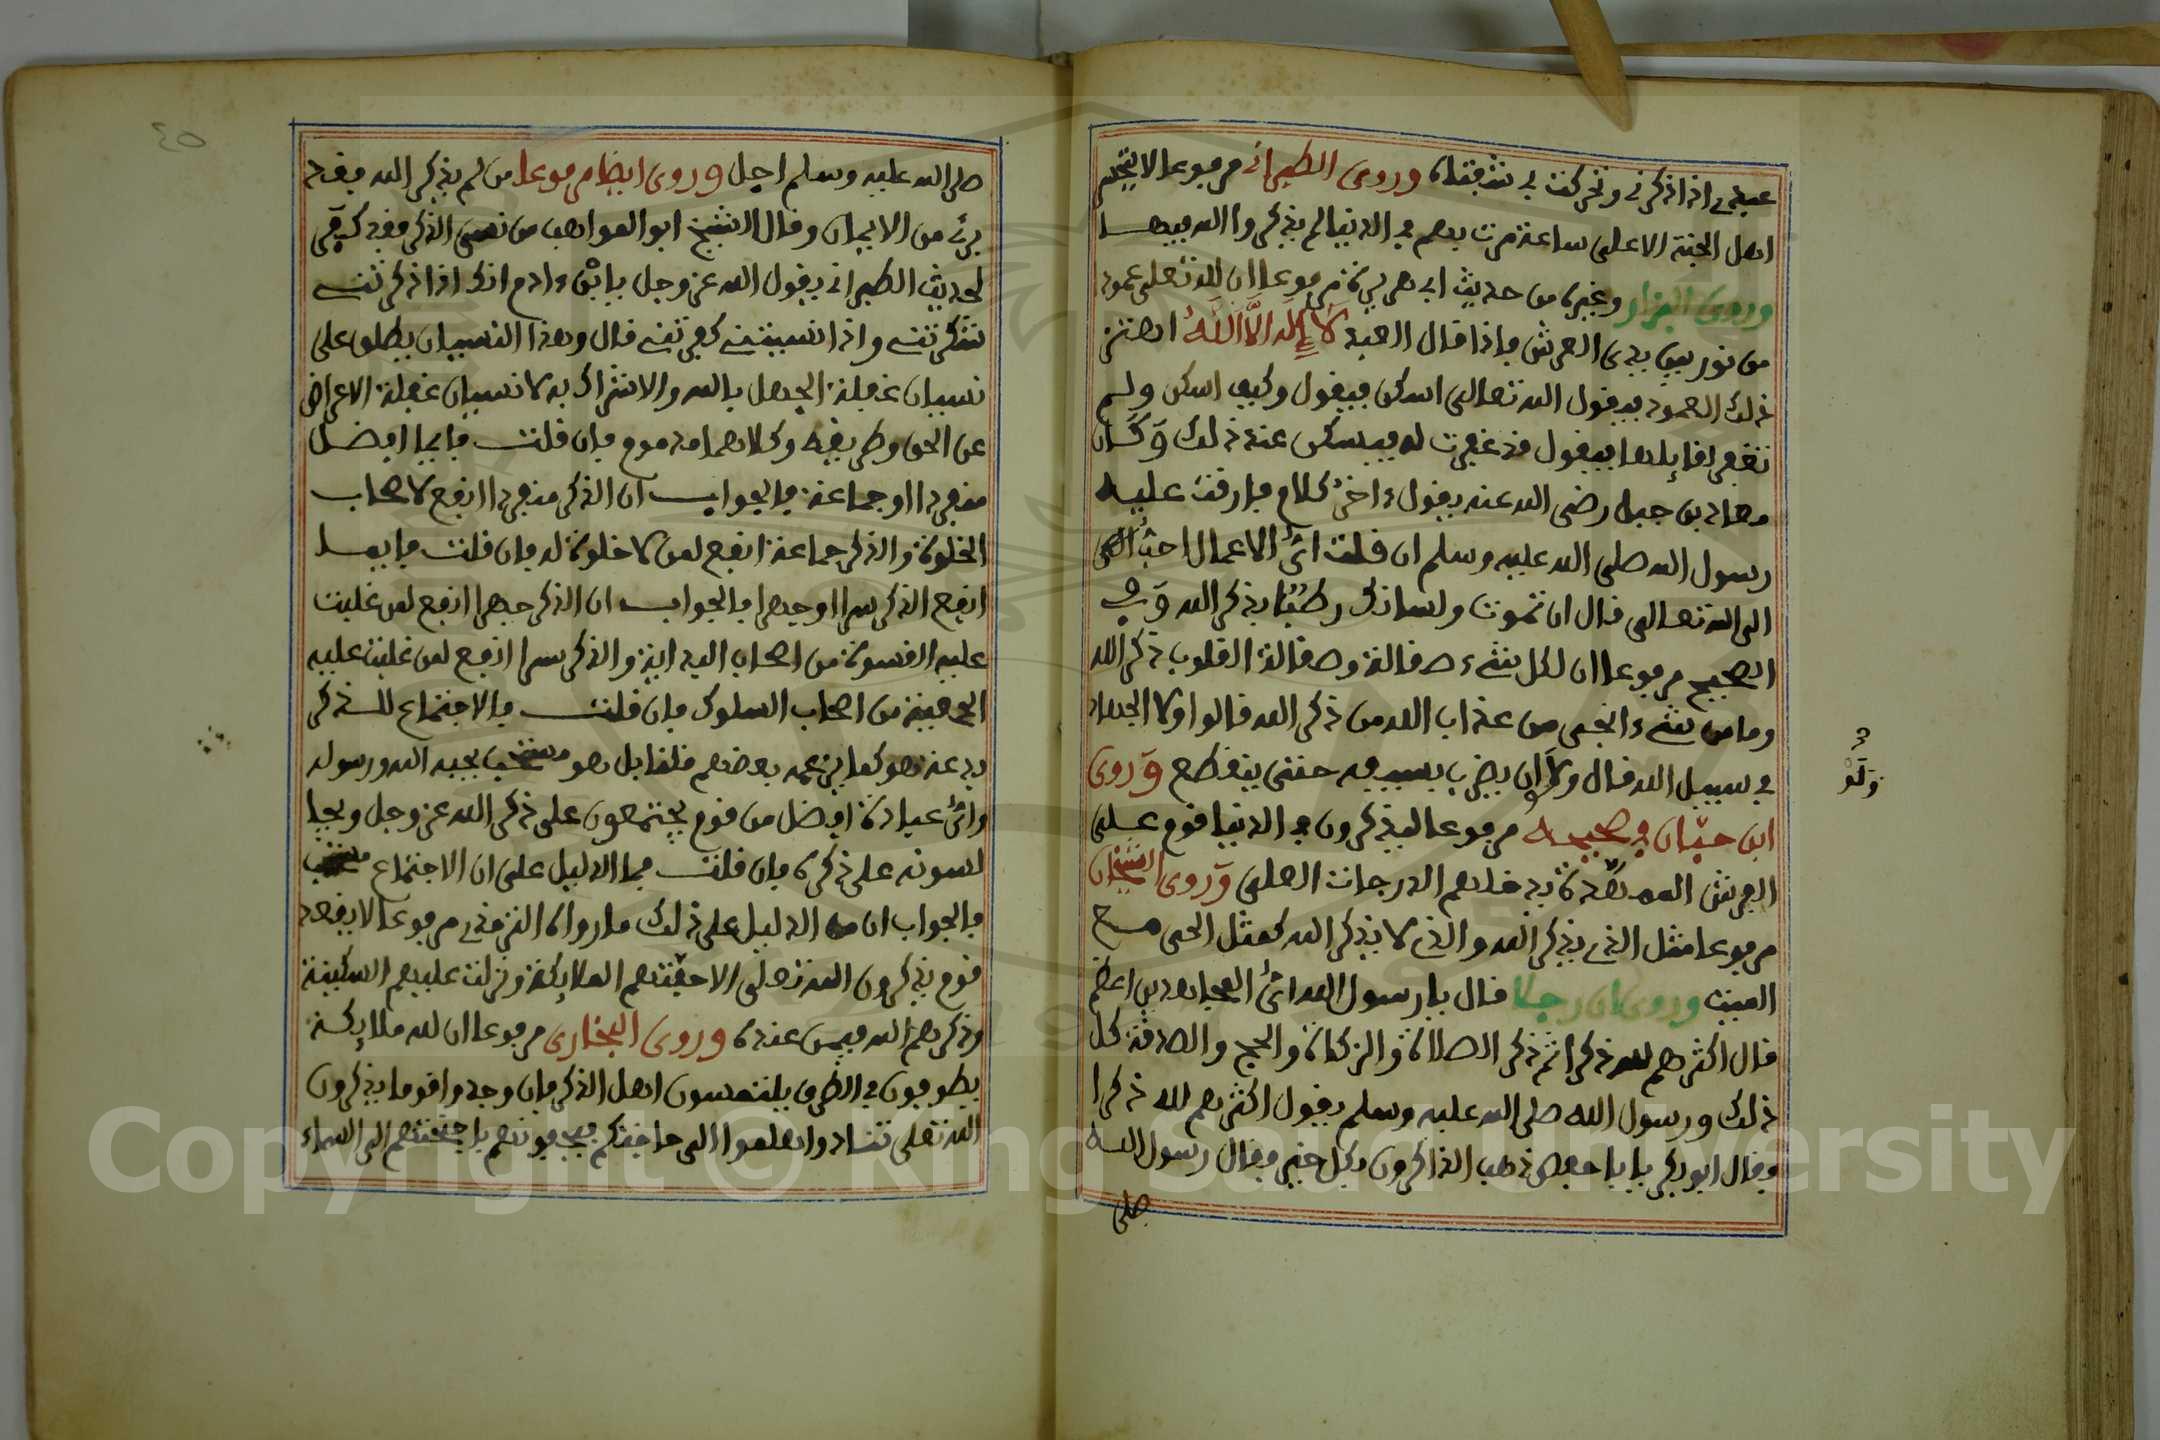 عبدي اذا ذكرني وتحركت بي شفتاه وروى الطبراني مرفوعا لا يتحسر
اهل الجنة الا على ساعة مرت بهم في الدنيا لم يذكروا الله فيها
وروى البزار وغيره من حديث ابي هريرة مرفوعا ان لله تعلى عمودا
من نور بين يدي العرش فاذا قال العبد لا إله الا الله اهتز
ذلك العمود فيقول الله تعالى اسكن فيقول وكيف اسكن ولم
تغفر لقايلها فيقول قد غفرت له فيسكن عند ذلك وكان
معاذ بن جبل رضي الله عنه يقول ءاخر كلام فارقت عليه
رسول الله صلى الله عليه وسلم ان قلت اي الاعمال احب
الى الله تعالى قال ان تموت ولسانك رطبا بذكر الله وفي
الصحيح مرفوعا ان لكل شيء صقالة وصقالة القلوب ذكر الله
وما من شيء انجى من عذاب الله من ذكر الله قالوا ولا الجهاد
في سبيل الله قال ولا ان يضرب بسيفه حتى ينقطع وروى
ولو
ابن حبان في صحيحه مرفوعا ليذكرون في الدنيا قوم على
الفرش الممهدة يدخلهم الدرجات العلى وروى الشيخان
مرفوعا مثل الذي يذكر الله والذي لا يذكر الله كمثل الحي مع
الميت وروى ان رجلا قال يا رسول الله اي المجاهدين اعظم
قال اكثرهم لله ذكرا ثم ذكر الصلاة والزكاة والحج والصدقة كل
ذلك ورسول الله صلى الله عليه وسلم يقول اكثرهم لله ذكرا
وقال ابو بكر يا با حفص ذهب الذاكرون بكل خير فقال رسول الله
صلى
٤٥
صلى الله عليه وسلم اجل وروى ايضا مرفوعا من لم يذكر الله فقد
برئ من الايمان وقال الشيخ ابو المواهب من نسي الذكر فقد كفر
لحديث الطبراني يقول الله عز وجل يا ابن ءادم انك اذا ذكرتني
شكرتني واذا نسيتني كفرتني قال وهذا النسيان يطلق على
نسيان غفلة الجهل بالله والاشراك به لا نسيان غفلة الاعراض
عن الحق وطريقه وكلاهما مذموم فان قلت فايما افضل
منفردا او جماعة فالجواب ان الذكر منفردا انفع لاصحاب
الخلوة والذكر جماعة انفع لمن لا خلوة له فان قلت فايهما
انفع الذكر سرا او جهرا فالجواب ان الذكر جهرا انفع لمن غلبت
عليه القسوة من اصحاب البداية والذكر سرا انفع لمن غلبت عليه
الجمعية من اصحاب السلوك فان قلت فالاجتماع للذكر
بدعة هو كما يزعمه بعضهم قلنا بل هو مستحب يحبه الله ورسوله
واي عبادة افضل من قوم يجتمعون على ذكر الله عز وجل ويجا
لسونه على ذكره فان قلت فما الدليل على ان الاجتماع مستحب
فالجواب ان من الدليل على ذلك ما رواه الترمذي مرفوعا لا يقعد
قوم يذكرون الله تعلى الا حفتهم الملايكة ونزلت عليهم السكينة
وذكرهم الله فيمن عنده وروى البخاري مرفوعا ان لله ملايكة
يطوفون في الطرق يلتمسون اهل الذكر فان وجدوا قوما يذكرون
الله تعلى تنادوا هلموا الى حاجتكم فيحفونهم باجنحتهم الى السماء